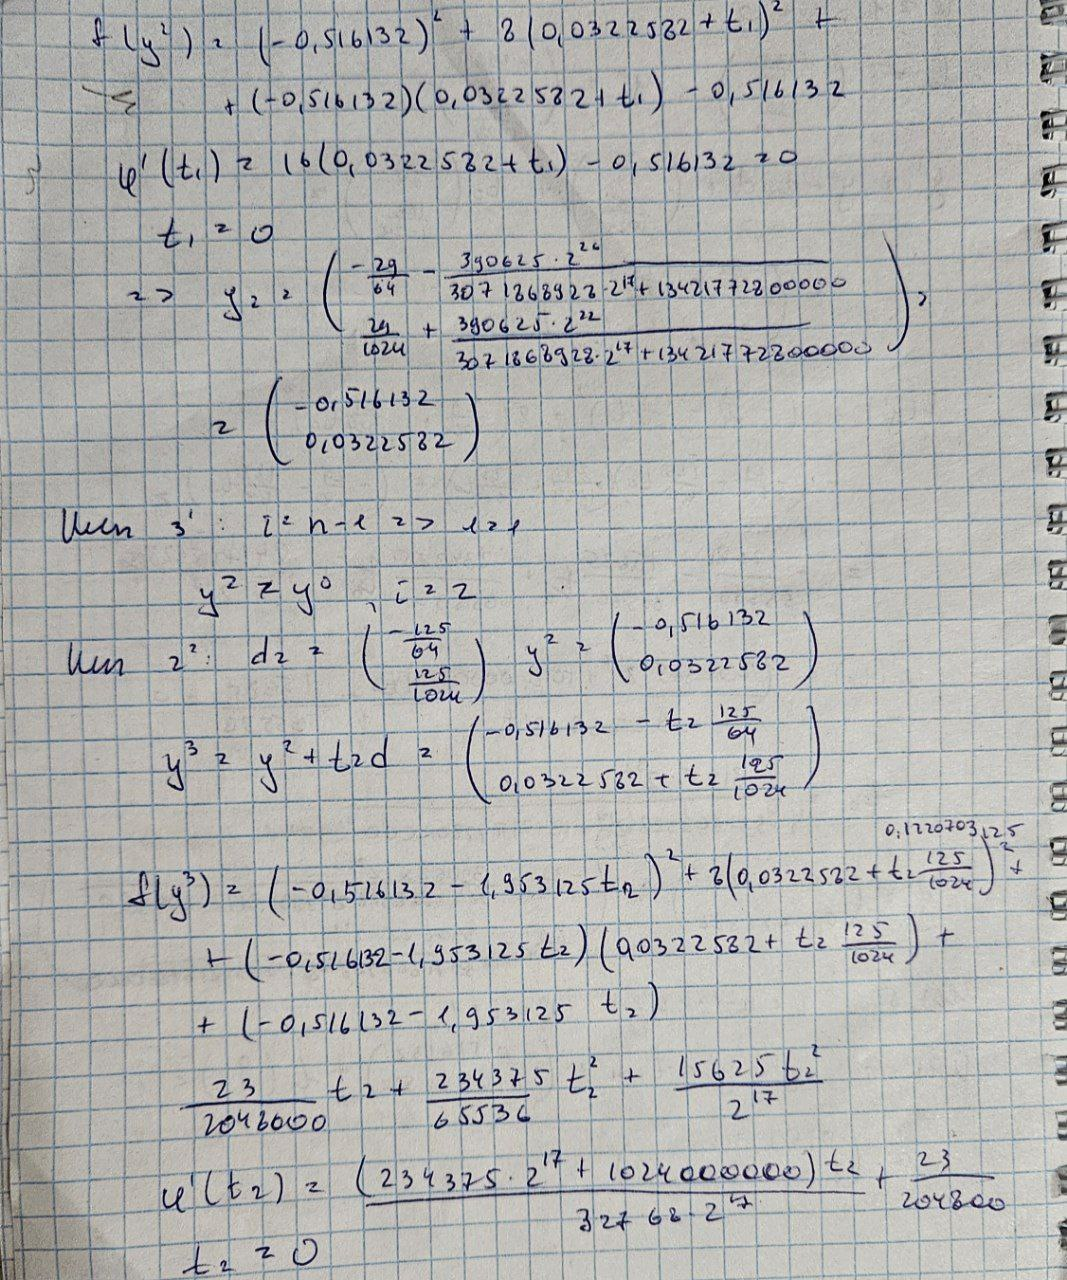 f(y²) = (-0,516132)² + 8(0,0322582+t₁)² +
+ (-0,516132)(0,0322582+t₁) - 0,516132
φ'(t₁) = 16(0,0322582+t₁) - 0,516132 = 0
t₁ = 0
=> y₂ = ( -29/64 - 390625·2²⁶/(3071868928·2¹⁷+13421772800000) ; 29/1024 + 390625·2²²/(3071868928·2¹⁷+13421772800000) ) =
= ( -0,516132 ; 0,0322582 )
Шаг 3¹: i = n-1 => 1=1
y² ≠ y⁰, i = 2
Шаг 2²: d₂ = ( -125/64 ; 125/1024 ) y² = ( -0,516132 ; 0,0322582 )
y³ = y² + t₂d = ( -0,516132 - t₂ 125/64 ; 0,0322582 + t₂ 125/1024 )
0,1220703125
f(y³) = (-0,516132 - 1,953125t₂)² + 8(0,0322582 + t₂ 125/1024)² +
+ (-0,516132-1,953125 t₂)(0,0322582+ t₂ 125/1024) +
+ (-0,516132-1,953125 t₂)
23/2048000 t₂ + 234375/65536 t₂² + 15625t₂²/2¹⁷
φ'(t₂) = (234375·2¹⁷ + 1024000000)t₂/32768·2¹⁷ + 23/204800
t₂ = 0